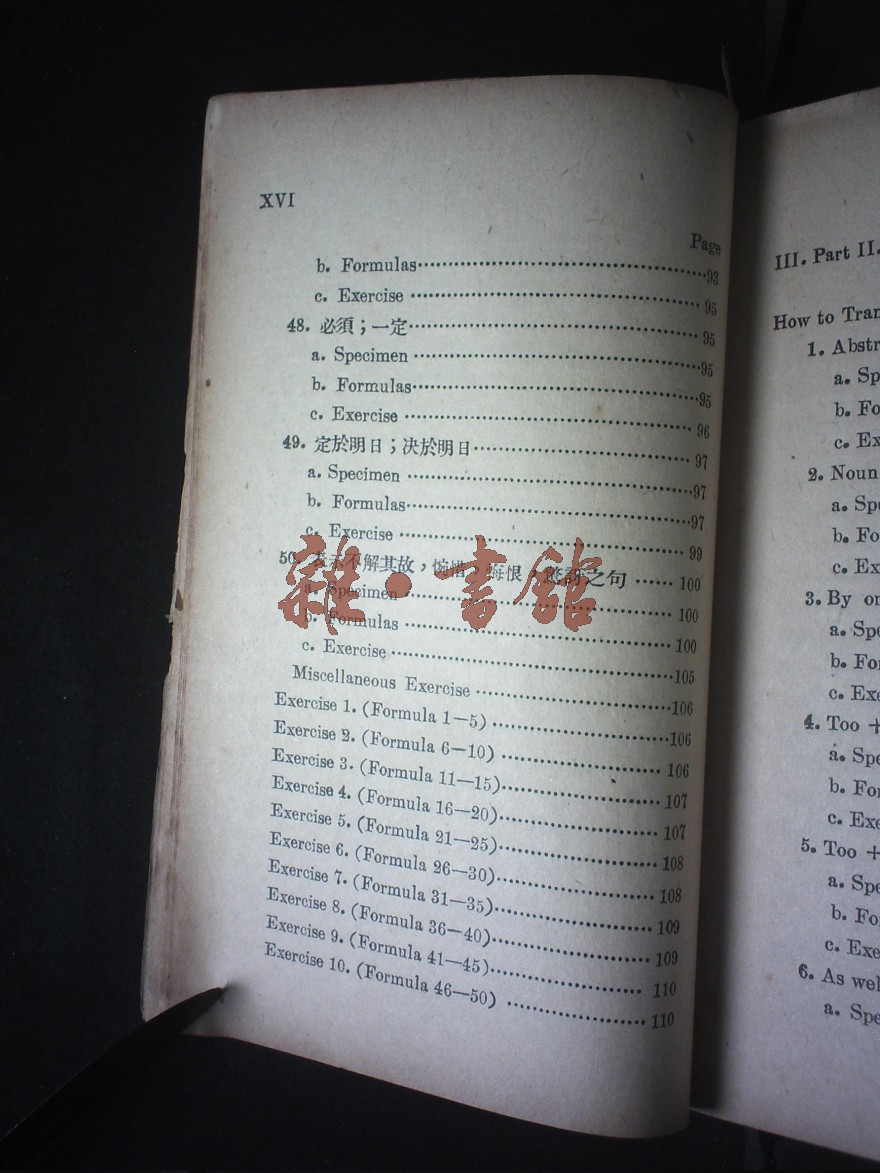 XVI
Page
b. Formulas 93
c. Exercise 95
48. 必須；一定 95
a. Specimen 95
b. Formulas 95
c. Exercise 96
49. 定於明日；決於明日 97
a. Specimen 97
b. Formulas 97
c. Exercise 99
50. 表示不解其故，惋惜，悔恨，驚訝之句 100
a. Specimen 100
b. Formulas 100
c. Exercise 105
Miscellaneous Exercise 106
Exercise 1. (Formula 1—5) 106
Exercise 2. (Formula 6—10) 106
Exercise 3. (Formula 11—15) 107
Exercise 4. (Formula 16—20) 107
Exercise 5. (Formula 21—25) 108
Exercise 6. (Formula 26—30) 108
Exercise 7. (Formula 31—35) 109
Exercise 8. (Formula 36—40) 109
Exercise 9. (Formula 41—45) 110
Exercise 10. (Formula 46—50) 110
雜·書館
III. Part II.
How to Tran
1. Abstr
a. Sp
b. Fo
c. Ex
2. Noun
a. Spe
b. Fo
c. Ex
3. By or
a. Spe
b. For
c. Exe
4. Too +
a. Spe
b. For
c. Exe
5. Too +
a. Spe
b. For
c. Exe
6. As wel
a. Spe